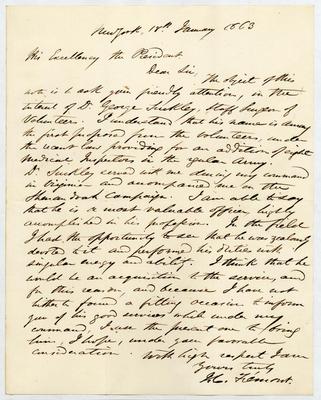 New York, 18th January 1863
His Excellency the President
Dear Sir,
The object of this
note is to ask your friendly attention, in the
interest of Dr. George Suckley, Staff Surgeon of
Volunteers. I understand that his name is among
the first proposed from the volunteers, under
the recent law providing for an addition of eight
Medical Inspectors in the regular Army.
Dr. Suckley served with me during my command
in Virginia and accompanied me on the
Shenandoah Campaign. I am able to say
that he is a most valuable officer, highly
accomplished in his profession. In the field
I had the opportunity to see that he was zealously
devoted to it and performed his duties with
singular energy and ability. I think that he
would be an acquisition to the service, and
for this reason, and because I have not
hitherto found a fitting occasion to inform
you of his good services while under my
command, I use the present one to bring
him, I hope, under your favorable
consideration. With high respect I am
Yours truly
J.C. Frémont.